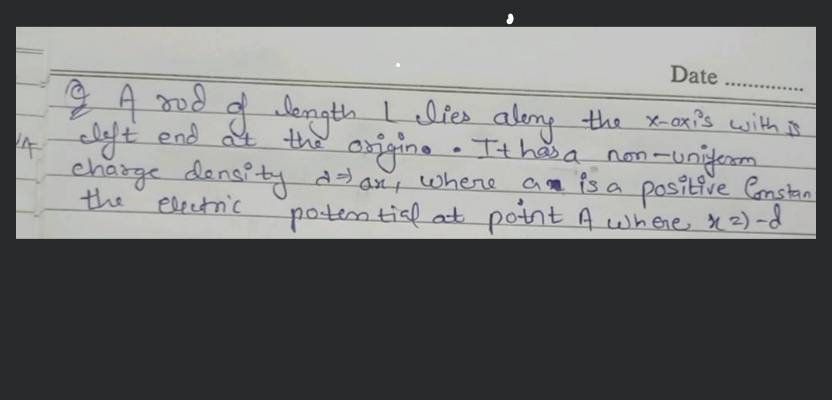 Date ..............
Q A rod of length L lies along the x-axis with is
left end at the origin. It has a non-uniform
charge density λ=) ax, where a is a positive Constan
the electric potential at point A where, x=) -d